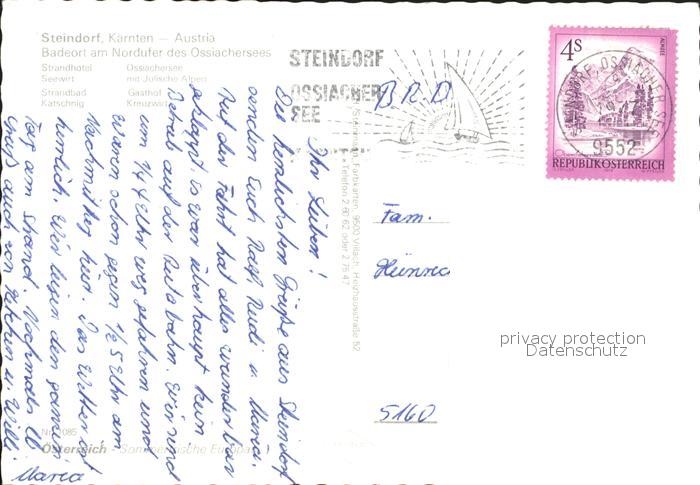 Steindorf, Kärnten — Austria
Badeort am Nordufer des Ossiachersees
Strandhotel Ossiachersee
Seewirt mit Julische Alpen
Strandbad Gasthof
Katschnig Kreuzwirt
STEINDORF
OSSIACHER
SEE
4S
ALMSEE
9552
REPUBLIK ÖSTERREICH
B R D
Ihr Lieben!
Die herzlichsten Grüße aus Steindorf
senden Euch Ralf, Rudi u. Marea.
Auf der Fahrt hat alles wunderbar
geklappt. Es war überhaupt kein
Betrieb auf der Autobahn. Wir sind
um 1/4 4 Uhr weg gefahren und
waren schon gegen 1/2 5 Uhr am
Nachmittag hier. Das Wetter ist
herrlich. Wir liegen den ganzen
Tag am Strand. Nochmals lb.
Gruß auch von
Marea
Farbkarten, 9500 Villach, Heizhausstraße 52
Telefon 2 60 62 oder 2 76 47
Fam.
Heinrec
5160
privacy protection
Datenschutz
Nr. 1085
Österreich - Sonnenterrasse Europas